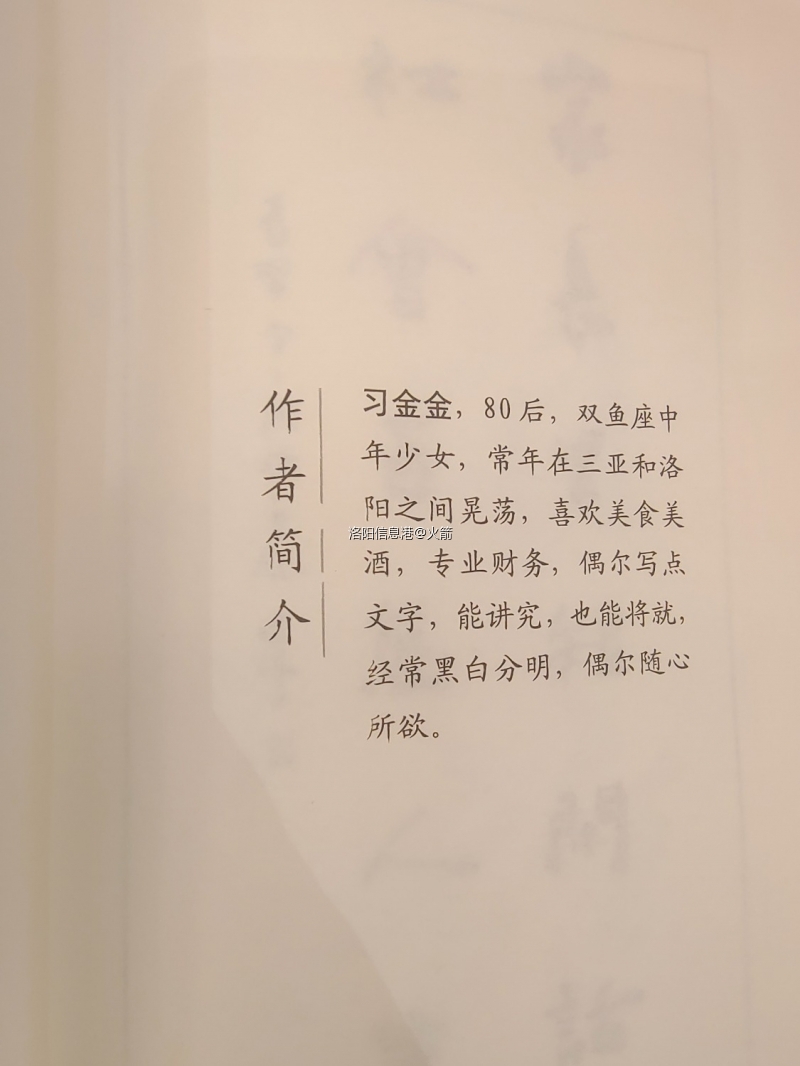 作者简介
习金金，80后，双鱼座中
年少女，常年在三亚和洛
阳之间晃荡，喜欢美食美
洛阳信息港@火箭
酒，专业财务，偶尔写点
文字，能讲究，也能将就，
经常黑白分明，偶尔随心
所欲。